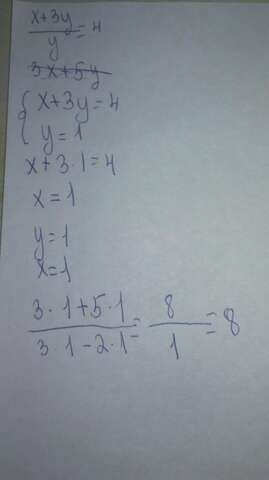 x+3y/y=4
3x+5y
{x+3y=4
y=1
x+3·1=4
x=1
y=1
x=1
3·1+5·1/3·1-2·1=8/1=8